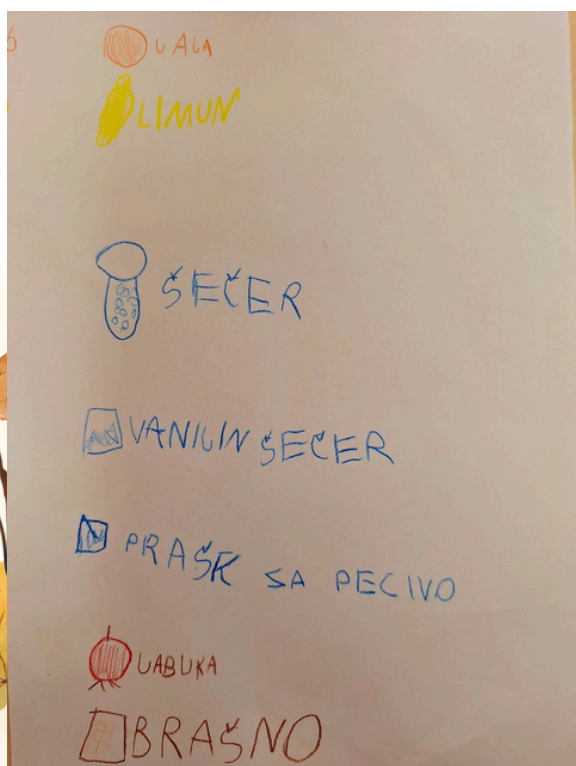 JAJA
LIMUN
ŠEČER
VANILIN ŠEČER
PRAŠK SA PECIVO
JABUKA
BRAŠNO